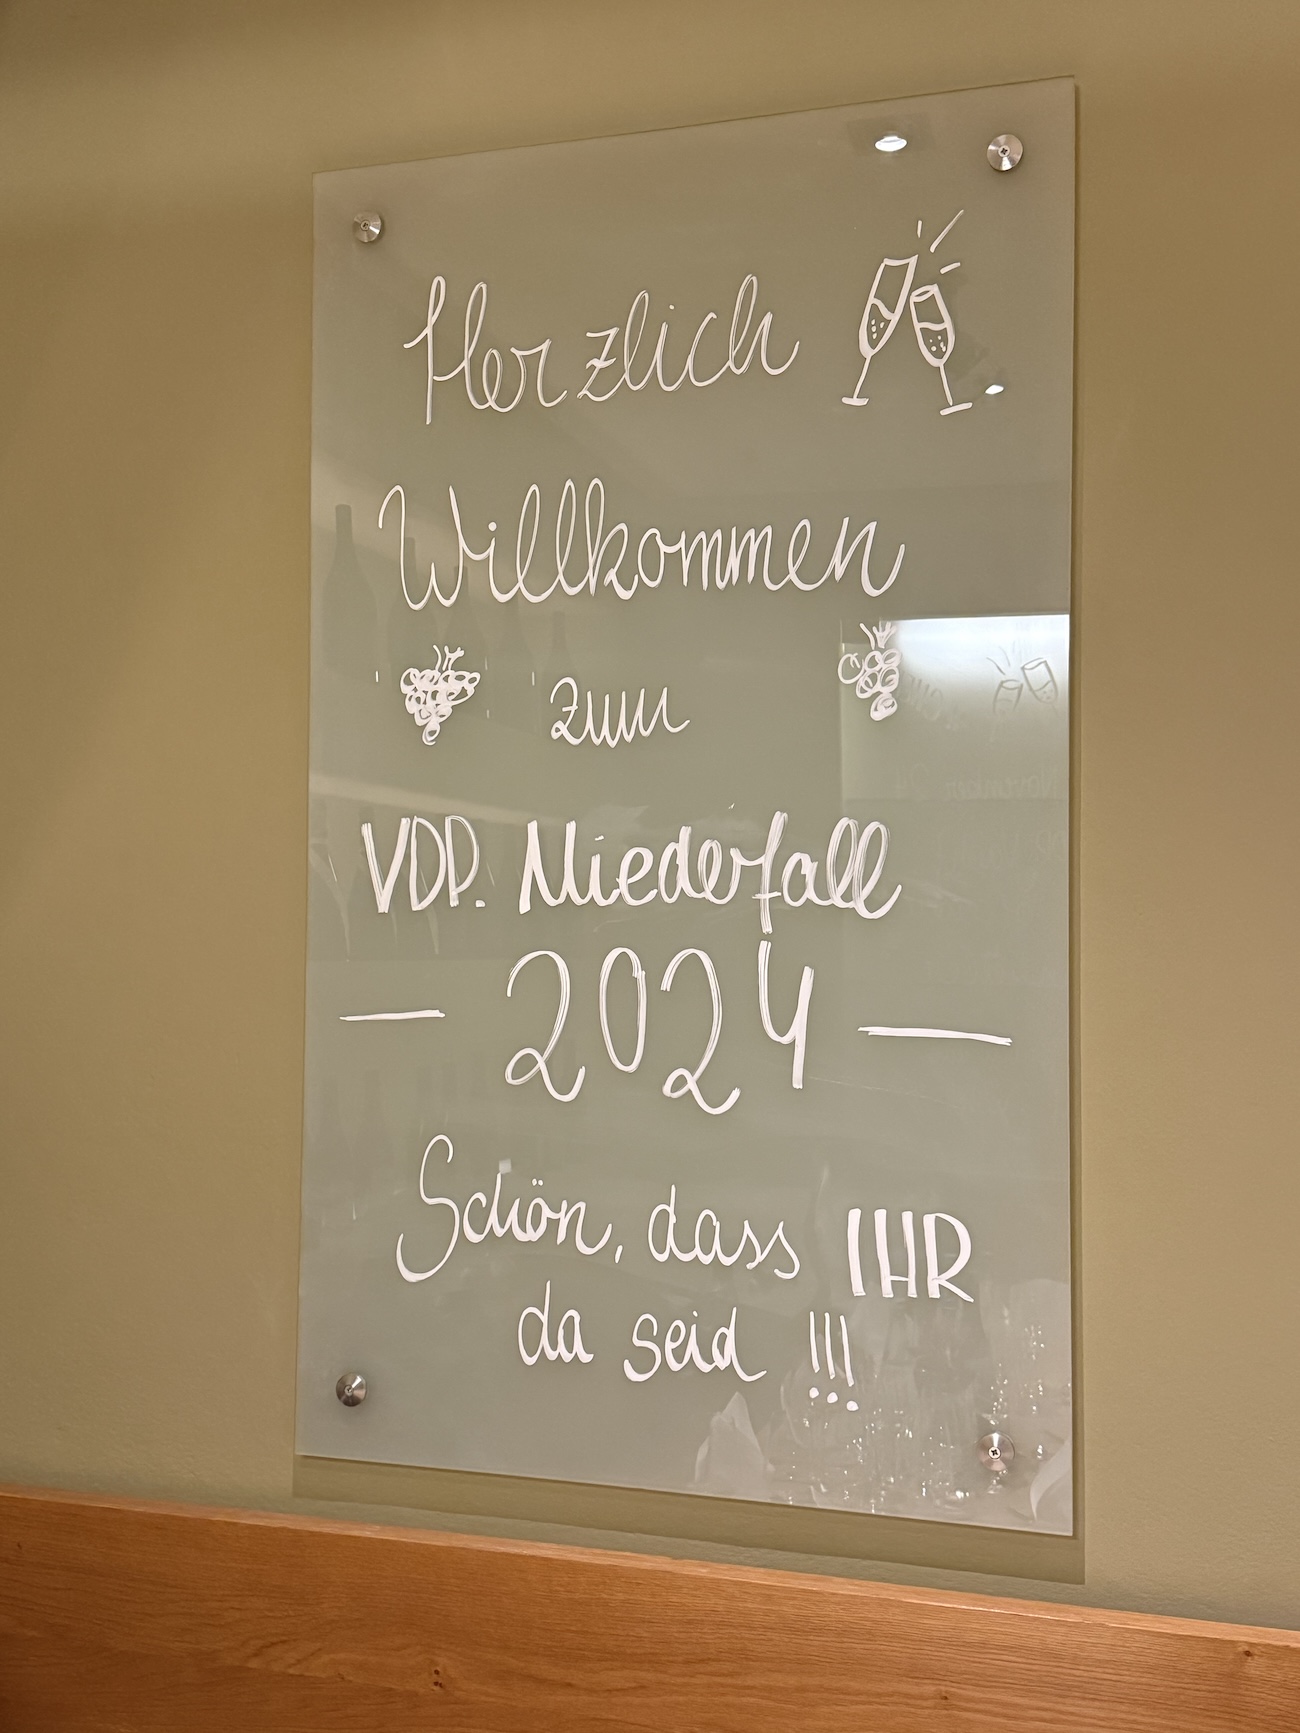 Herzlich
Willkommen
zum
VDP. Niederfall
— 2024 —
Schön, dass IHR
da seid !!!
November 24